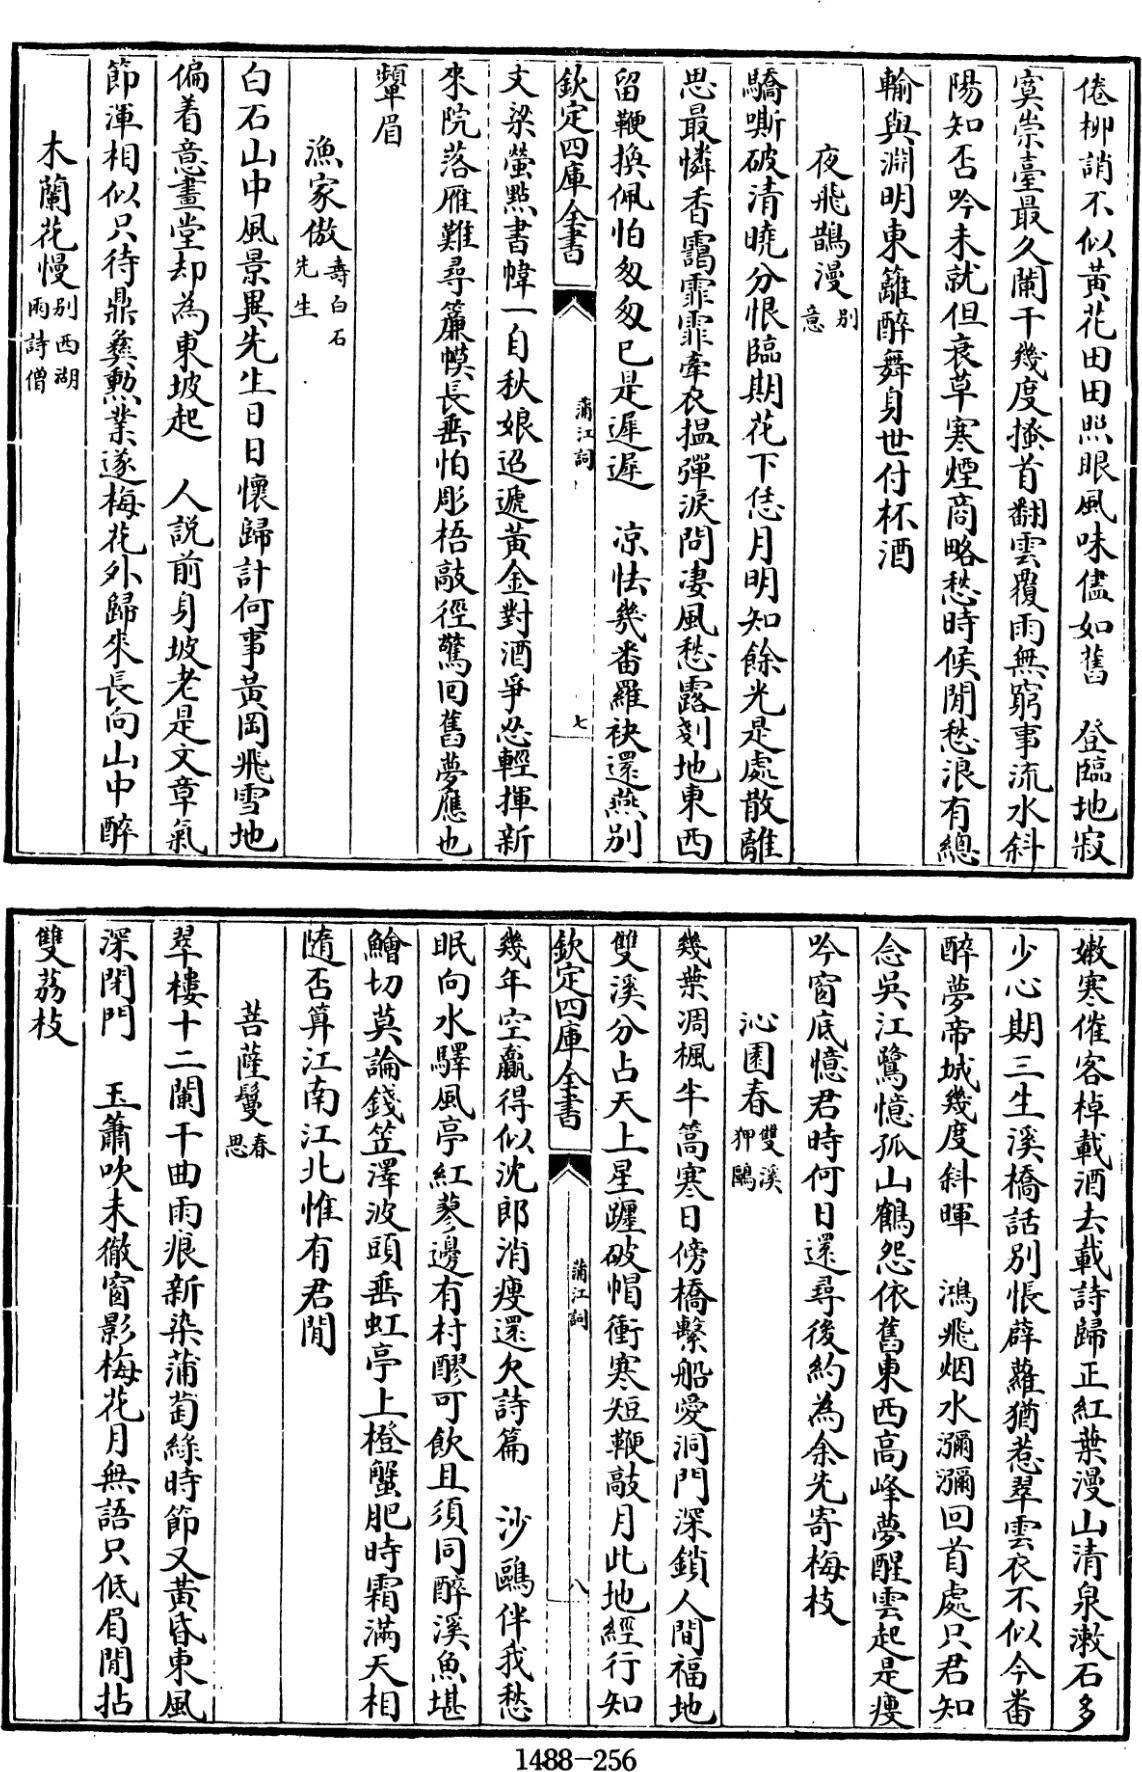 倦柳誚不似黃花田田照眼風味儘如舊　登臨地寂
寞崇臺最久闌干幾度搔首翻雲覆雨無窮事流水斜
陽知否吟未就但衰草寒煙商略愁時候閒愁浪有總
輸與淵明東籬醉舞身世付杯酒
夜飛鵲漫別意
驕嘶破清曉分恨臨期花下恁月明知餘光是處散離
思最憐香靄霏霏牽衣揾彈淚問凄風愁露剗地東西
留鞭換佩怕匆匆已是遲遲　凉怯幾番羅袂還燕別
文梁螢點書幃一自秋娘迢遞黃金對酒爭忍輕揮新
來院落雁難尋簾幙長垂怕彫梧敲徑驚回舊夢應也
顰眉
漁家傲壽白石先生
白石山中風景異先生日日懷歸計何事黃岡飛雪地
偏着意畫堂却為東坡起　人説前身坡老是文章氣
節渾相似只待鼎彝勲業遂梅花外歸來長向山中醉
木蘭花慢別西湖兩詩僧
欽定四庫全書
蒲江詞
七
嫩寒催客棹載酒去載詩歸正紅葉漫山清泉漱石多
少心期三生溪橋話別悵薜蘿猶惹翠雲衣不似今番
醉夢帝城幾度斜暉　鴻飛烟水瀰瀰回首處只君知
念吳江鷺憶孤山鶴怨依舊東西高峰夢醒雲起是瘦
吟窗底憶君時何日還尋後約為余先寄梅枝
沁園春雙溪狎鷗
幾葉凋楓半篙寒日傍橋繫船愛洞門深鎖人間福地
雙溪分占天上星躔破帽衝寒短鞭敲月此地經行知
幾年空贏得似沈郎消瘦還欠詩篇　沙鷗伴我愁
眠向水驛風亭紅蓼邊有村醪可飲且須同醉溪魚堪
鱠切莫論錢笠澤波頭垂虹亭上橙蟹肥時霜滿天相
隨否算江南江北惟有君閒
菩薩鬘春思
翠樓十二闌干曲雨痕新染蒲萄綠時節又黃昏東風
深閉門　玉簫吹未徹窗影梅花月無語只低眉閒拈
雙荔枝
欽定四庫全書
蒲江詞
八
1488-256